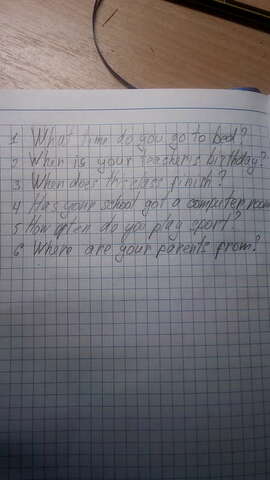 1 What time do you go to bed?
2 When is your teacher's birthday?
3 When does the class finish?
4 Has your school got a computer room
5 How often do you play sport?
6 Where are your parents from?